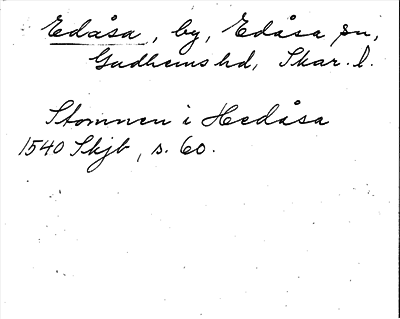 Edåsa, by, Edåsa sn,
Gudhems hd, Skar. l.
Stommen i Hedåsa
1540 Skjb, s. 60.